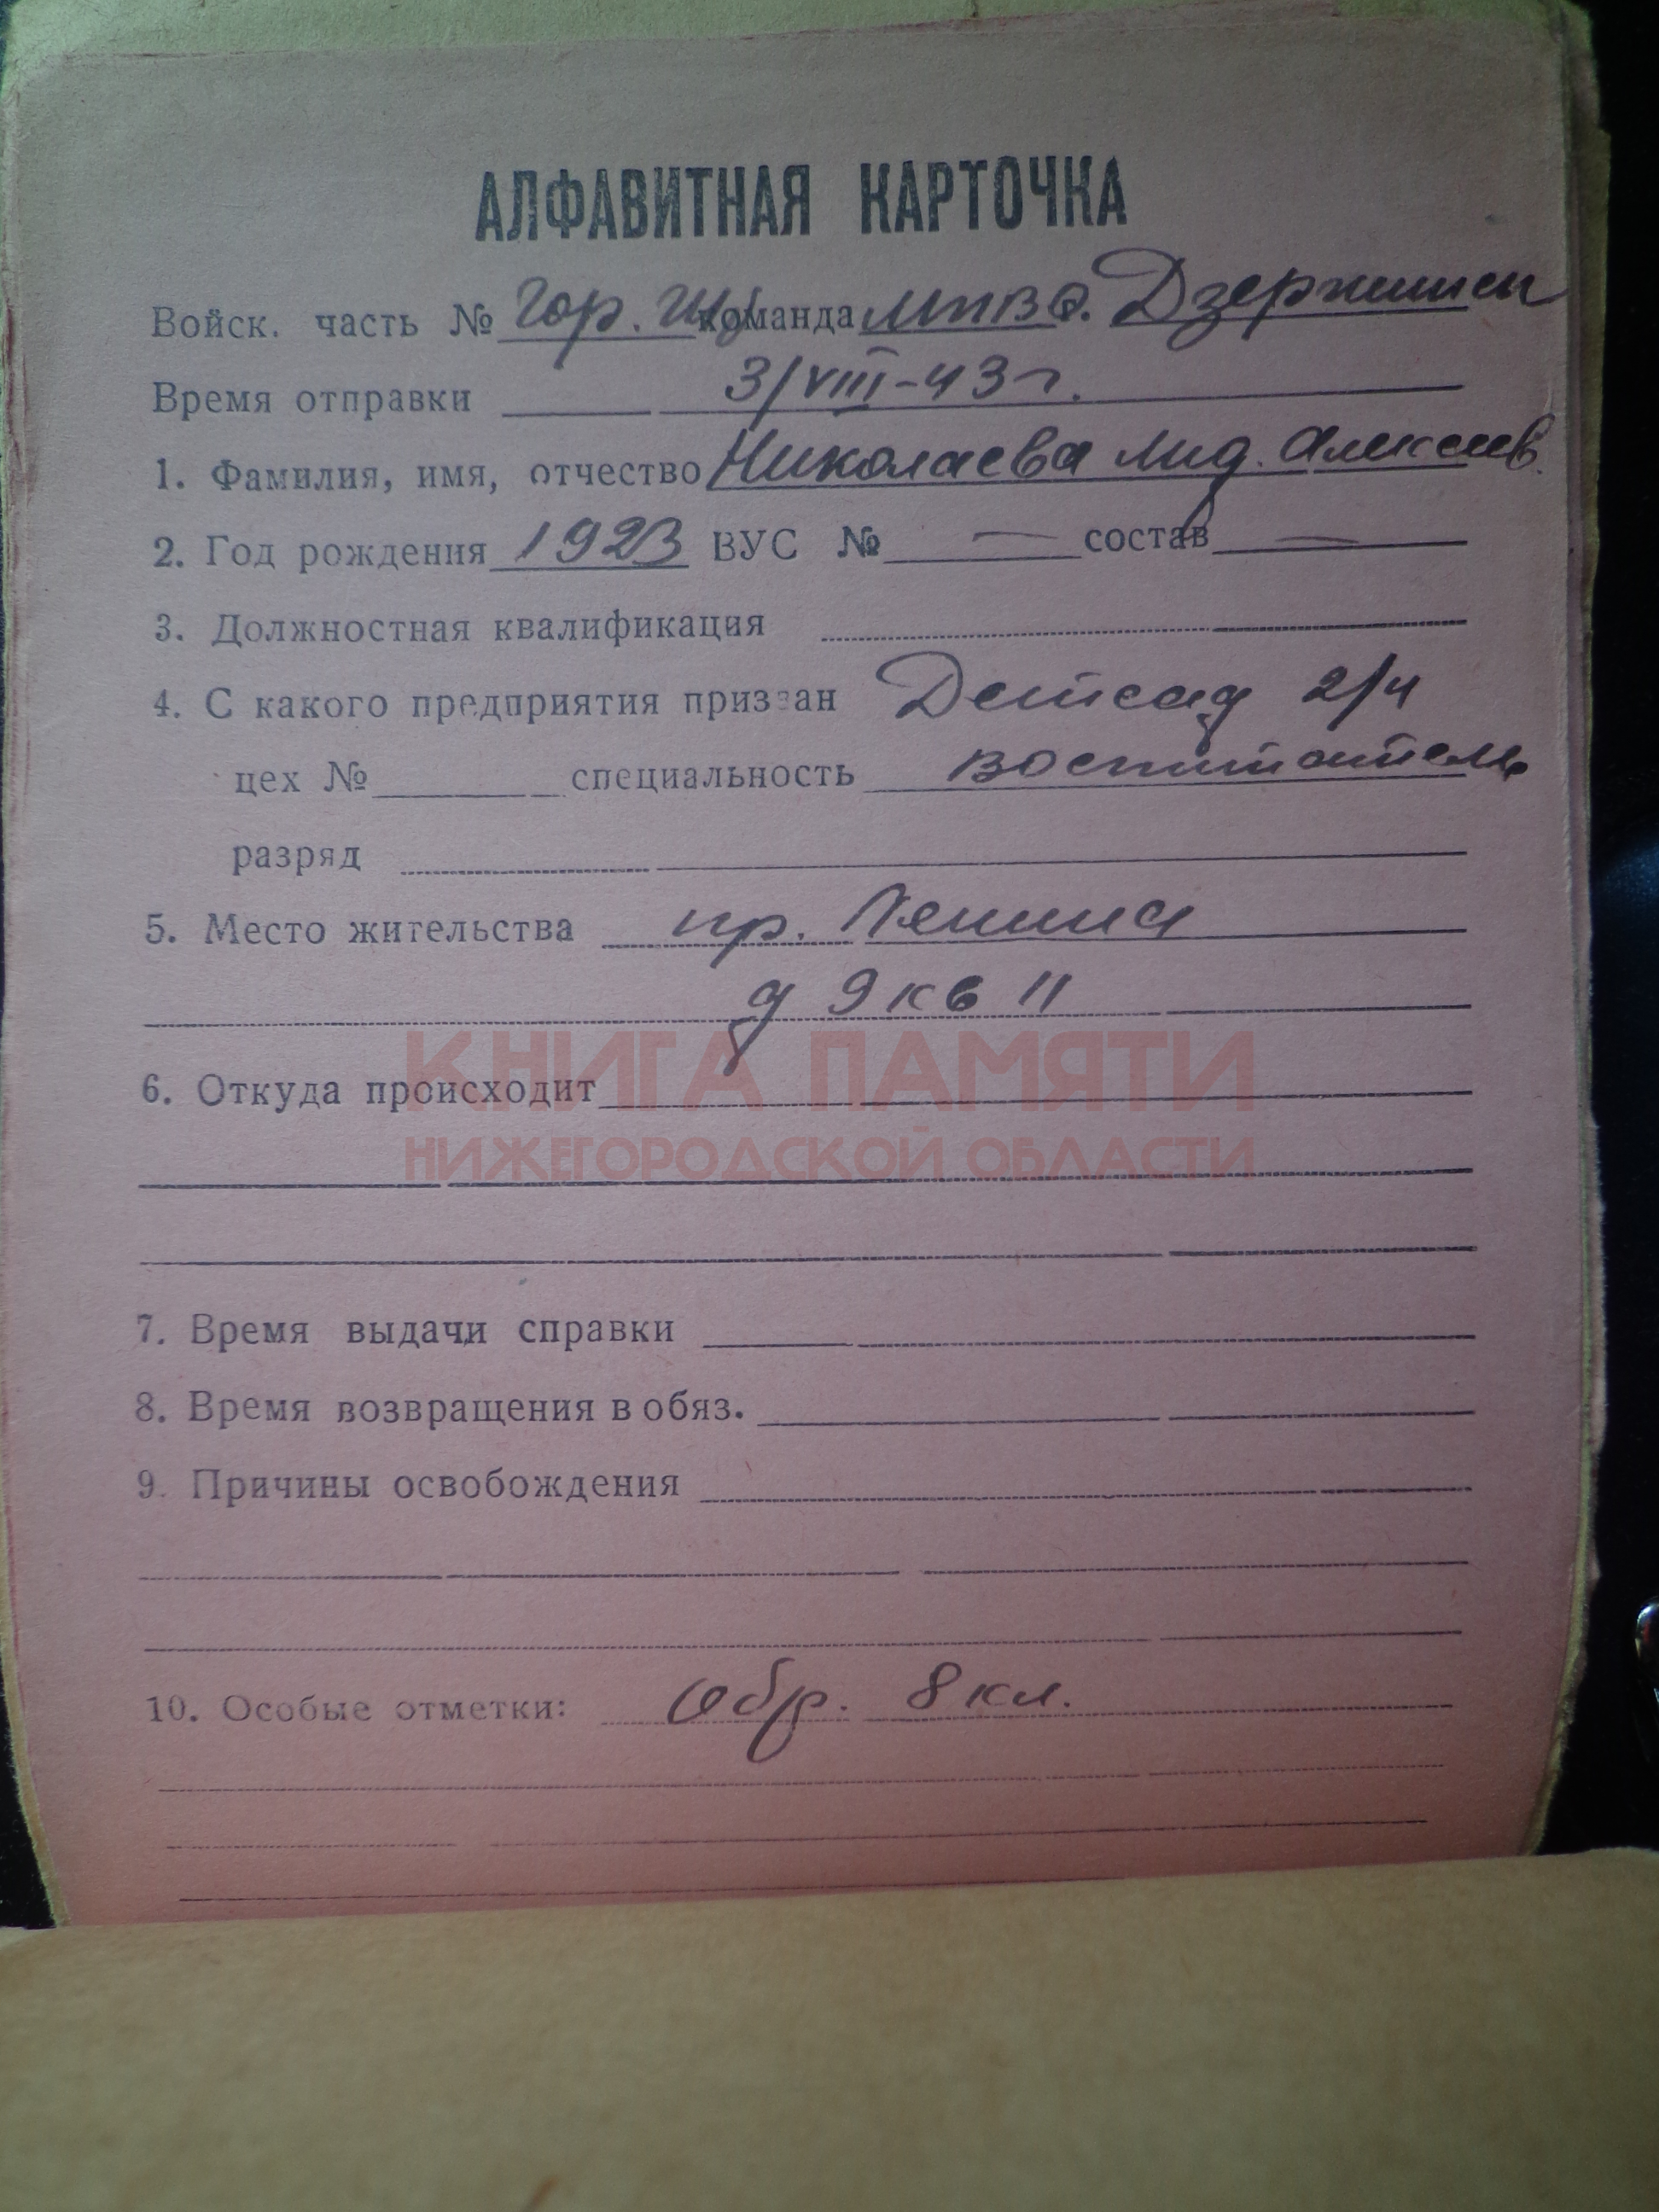 АЛФАВИТНАЯ КАРТОЧКА
Войск. часть № Гор. Шт. команда МПВО. Дзержинск
Время отправки 3/VIII-43 г.
1. Фамилия, имя, отчество Николаева Лид. Алексеев.
2. Год рождения 1923 ВУС № — состав —
3. Должностная квалификация
4. С какого предприятия призван Детсад 2/4
цех № специальность воспитатель
разряд
5. Место жительства пр. Ленина
д 9 кв 11
КНИГА ПАМЯТИ
6. Откуда происходит
НИЖЕГОРОДСКОЙ ОБЛАСТИ
7. Время выдачи справки
8. Время возвращения в обяз.
9. Причины освобождения
10. Особые отметки: Обр. 8 кл.